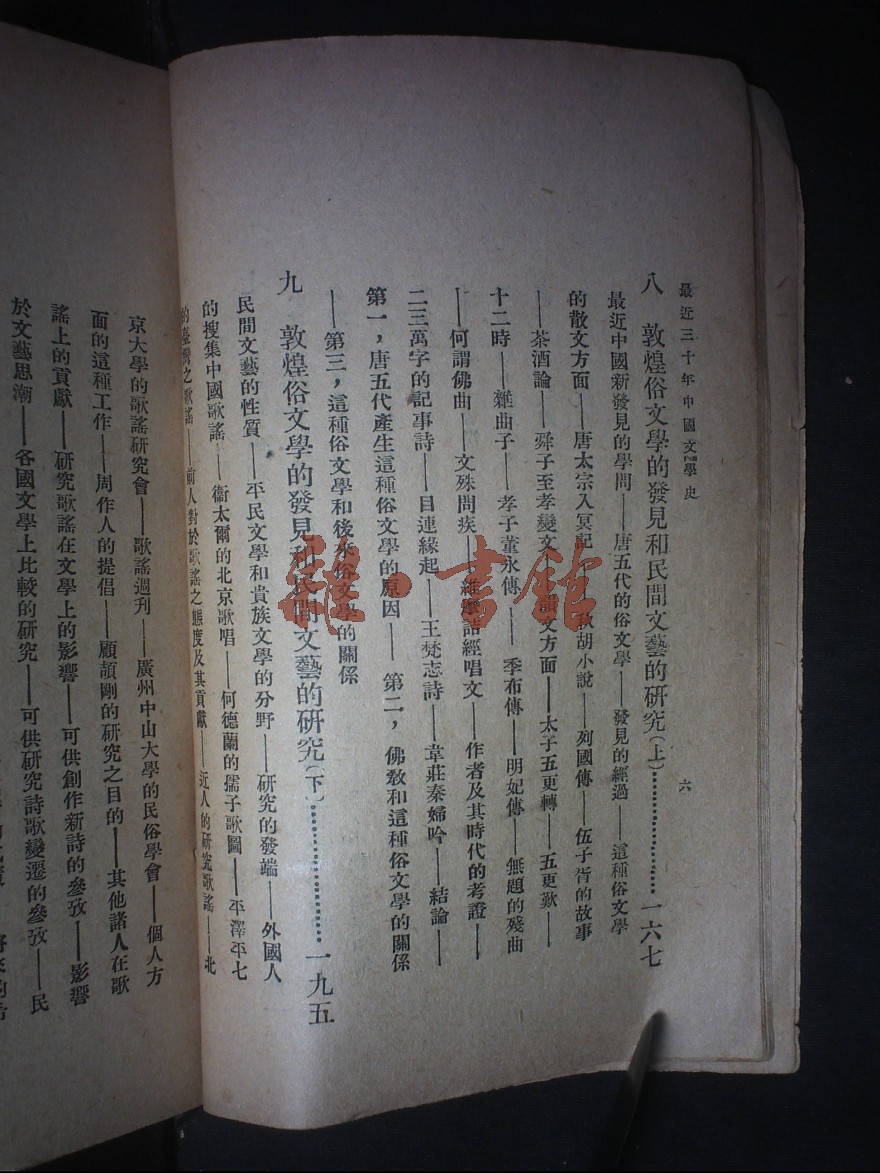 最近三十年中國文學史
六
八 敦煌俗文學的發見和民間文藝的研究(上)……………一六七
最近中國新發見的學問——唐五代的俗文學——發見的經過——這種俗文學
的散文方面——唐太宗入冥記——秋胡小說——列國傳——伍子胥的故事
——茶酒論——舜子至孝變文——韻文方面——太子五更轉——五更歎——
十二時——雜曲子——孝子董永傳——季布傳——明妃傳——無題的殘曲
——何謂佛曲——文殊問疾——維摩詰經唱文——作者及其時代的考證——
二三萬字的記事詩——目連緣起——王梵志詩——韋莊秦婦吟——結論——
第一，唐五代產生這種俗文學的原因——第二，佛教和這種俗文學的關係
——第三，這種俗文學和後來俗文學的關係
九 敦煌俗文學的發見和民間文藝的研究(下)……………一九五
民間文藝的性質——平民文學和貴族文學的分野——研究的發端——外國人
的搜集中國歌謠——衞太爾的北京歌唱——何德蘭的孺子歌圖——平澤平七
的臺灣之歌謠——前人對於歌謠之態度及其貢獻——近人的研究歌謠——北
京大學的歌謠研究會——歌謠週刊——廣州中山大學的民俗學會——個人方
面的這種工作——周作人的提倡——顧頡剛的研究之目的——其他諸人在歌
謠上的貢獻——研究歌謠在文學上的影響——可供創作新詩的參攷——影響
於文藝思潮——各國文學上比較的研究——可供研究詩歌變遷的參攷——民
雜·書館